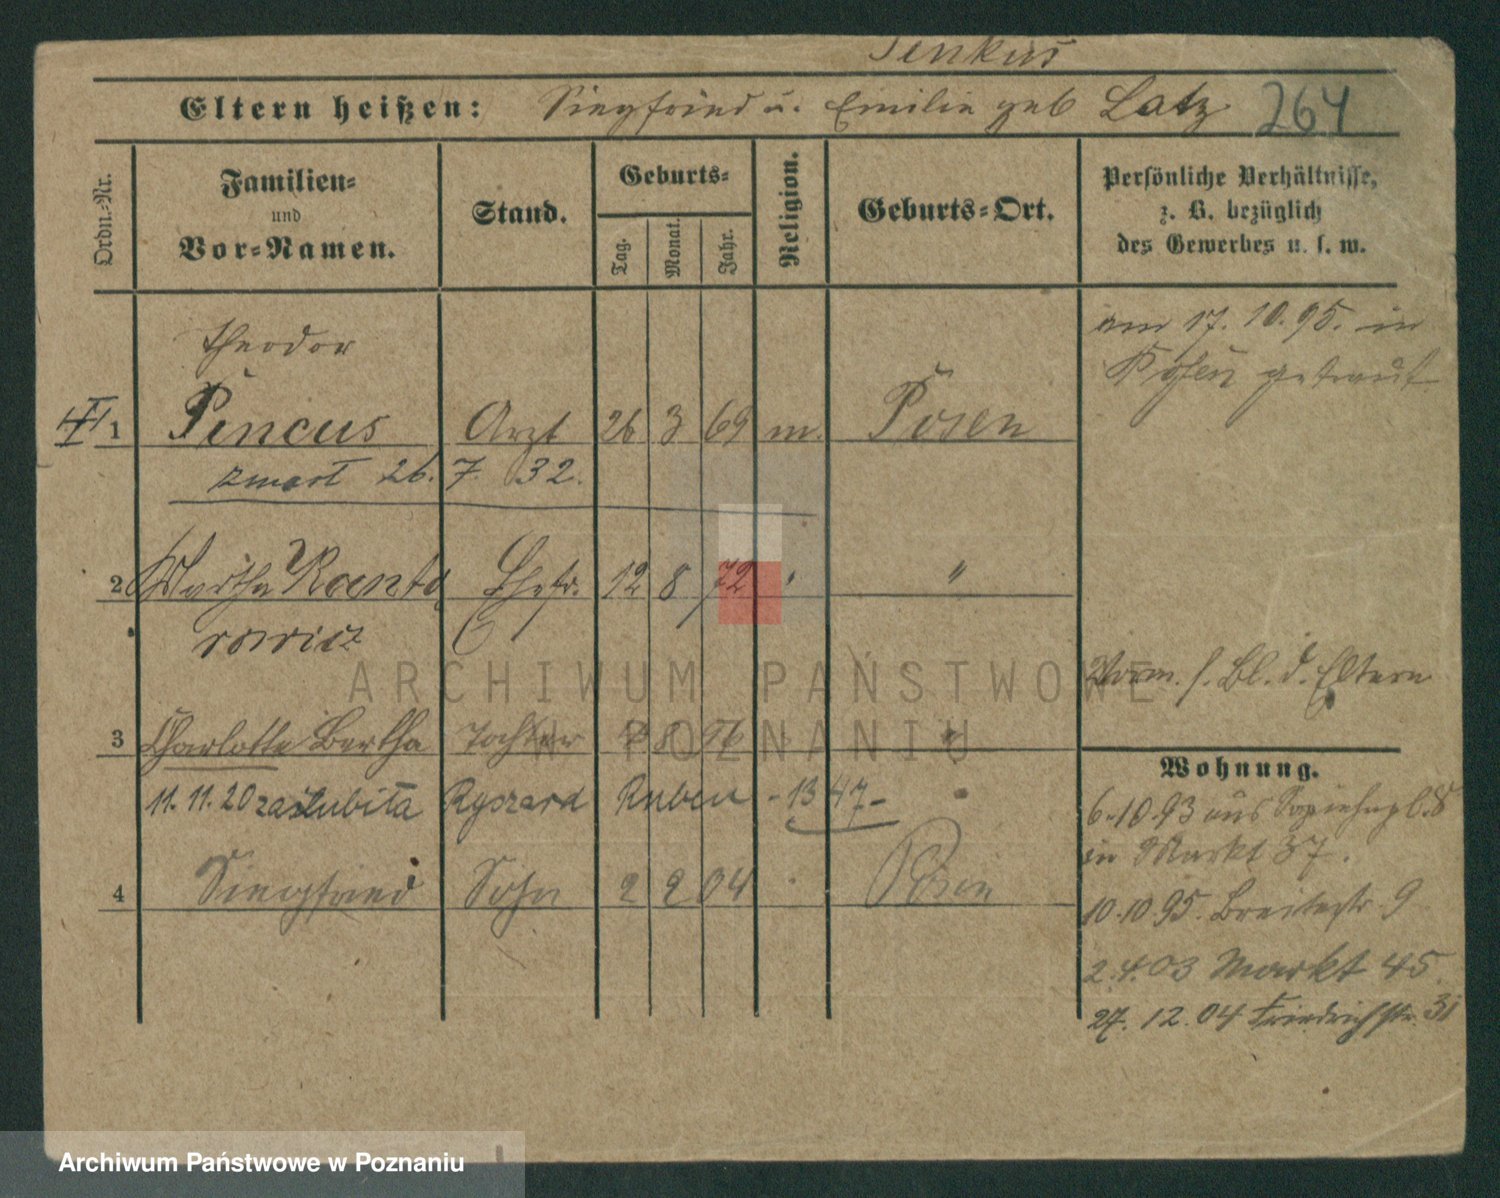 Penkus
Eltern heißen: Siegfried u. Emilie geb Latz 264
Ordn.-Nr.
Familien-
und
Vor-Namen.
Stand.
Geburts-
Tag. Monat. Jahr.
Religion.
Geburts-Ort.
Persönliche Verhältnisse,
z. B. bezüglich
des Gewerbes u. s. w.
am 17. 10. 95. in
Posen getraut
Theodor
1 Pincus Arzt 26 3 69 m. Posen
zmarł 26. 7. 32.
2 Martha Kanto Ehefr. 12 8 72 " "
rowicz
Vorm. s. Bl. d. Eltern
3 Charlotte Bertha Tochter 8 96 "
11. 11. 20 zaślubiła Ryszard Ruben - 1347 -
4 Siegfried Sohn 2 2 04 " Posen
Wohnung.
6.10.93 aus Sapiehapl. 8
in Markt 37.
10.10.95. Breitestr. 9
2.4.03 Markt 45.
27.12.04 Friedrichstr. 31
ARCHIWUM PAŃSTWOWE
W POZNANIU
Archiwum Państwowe w Poznaniu